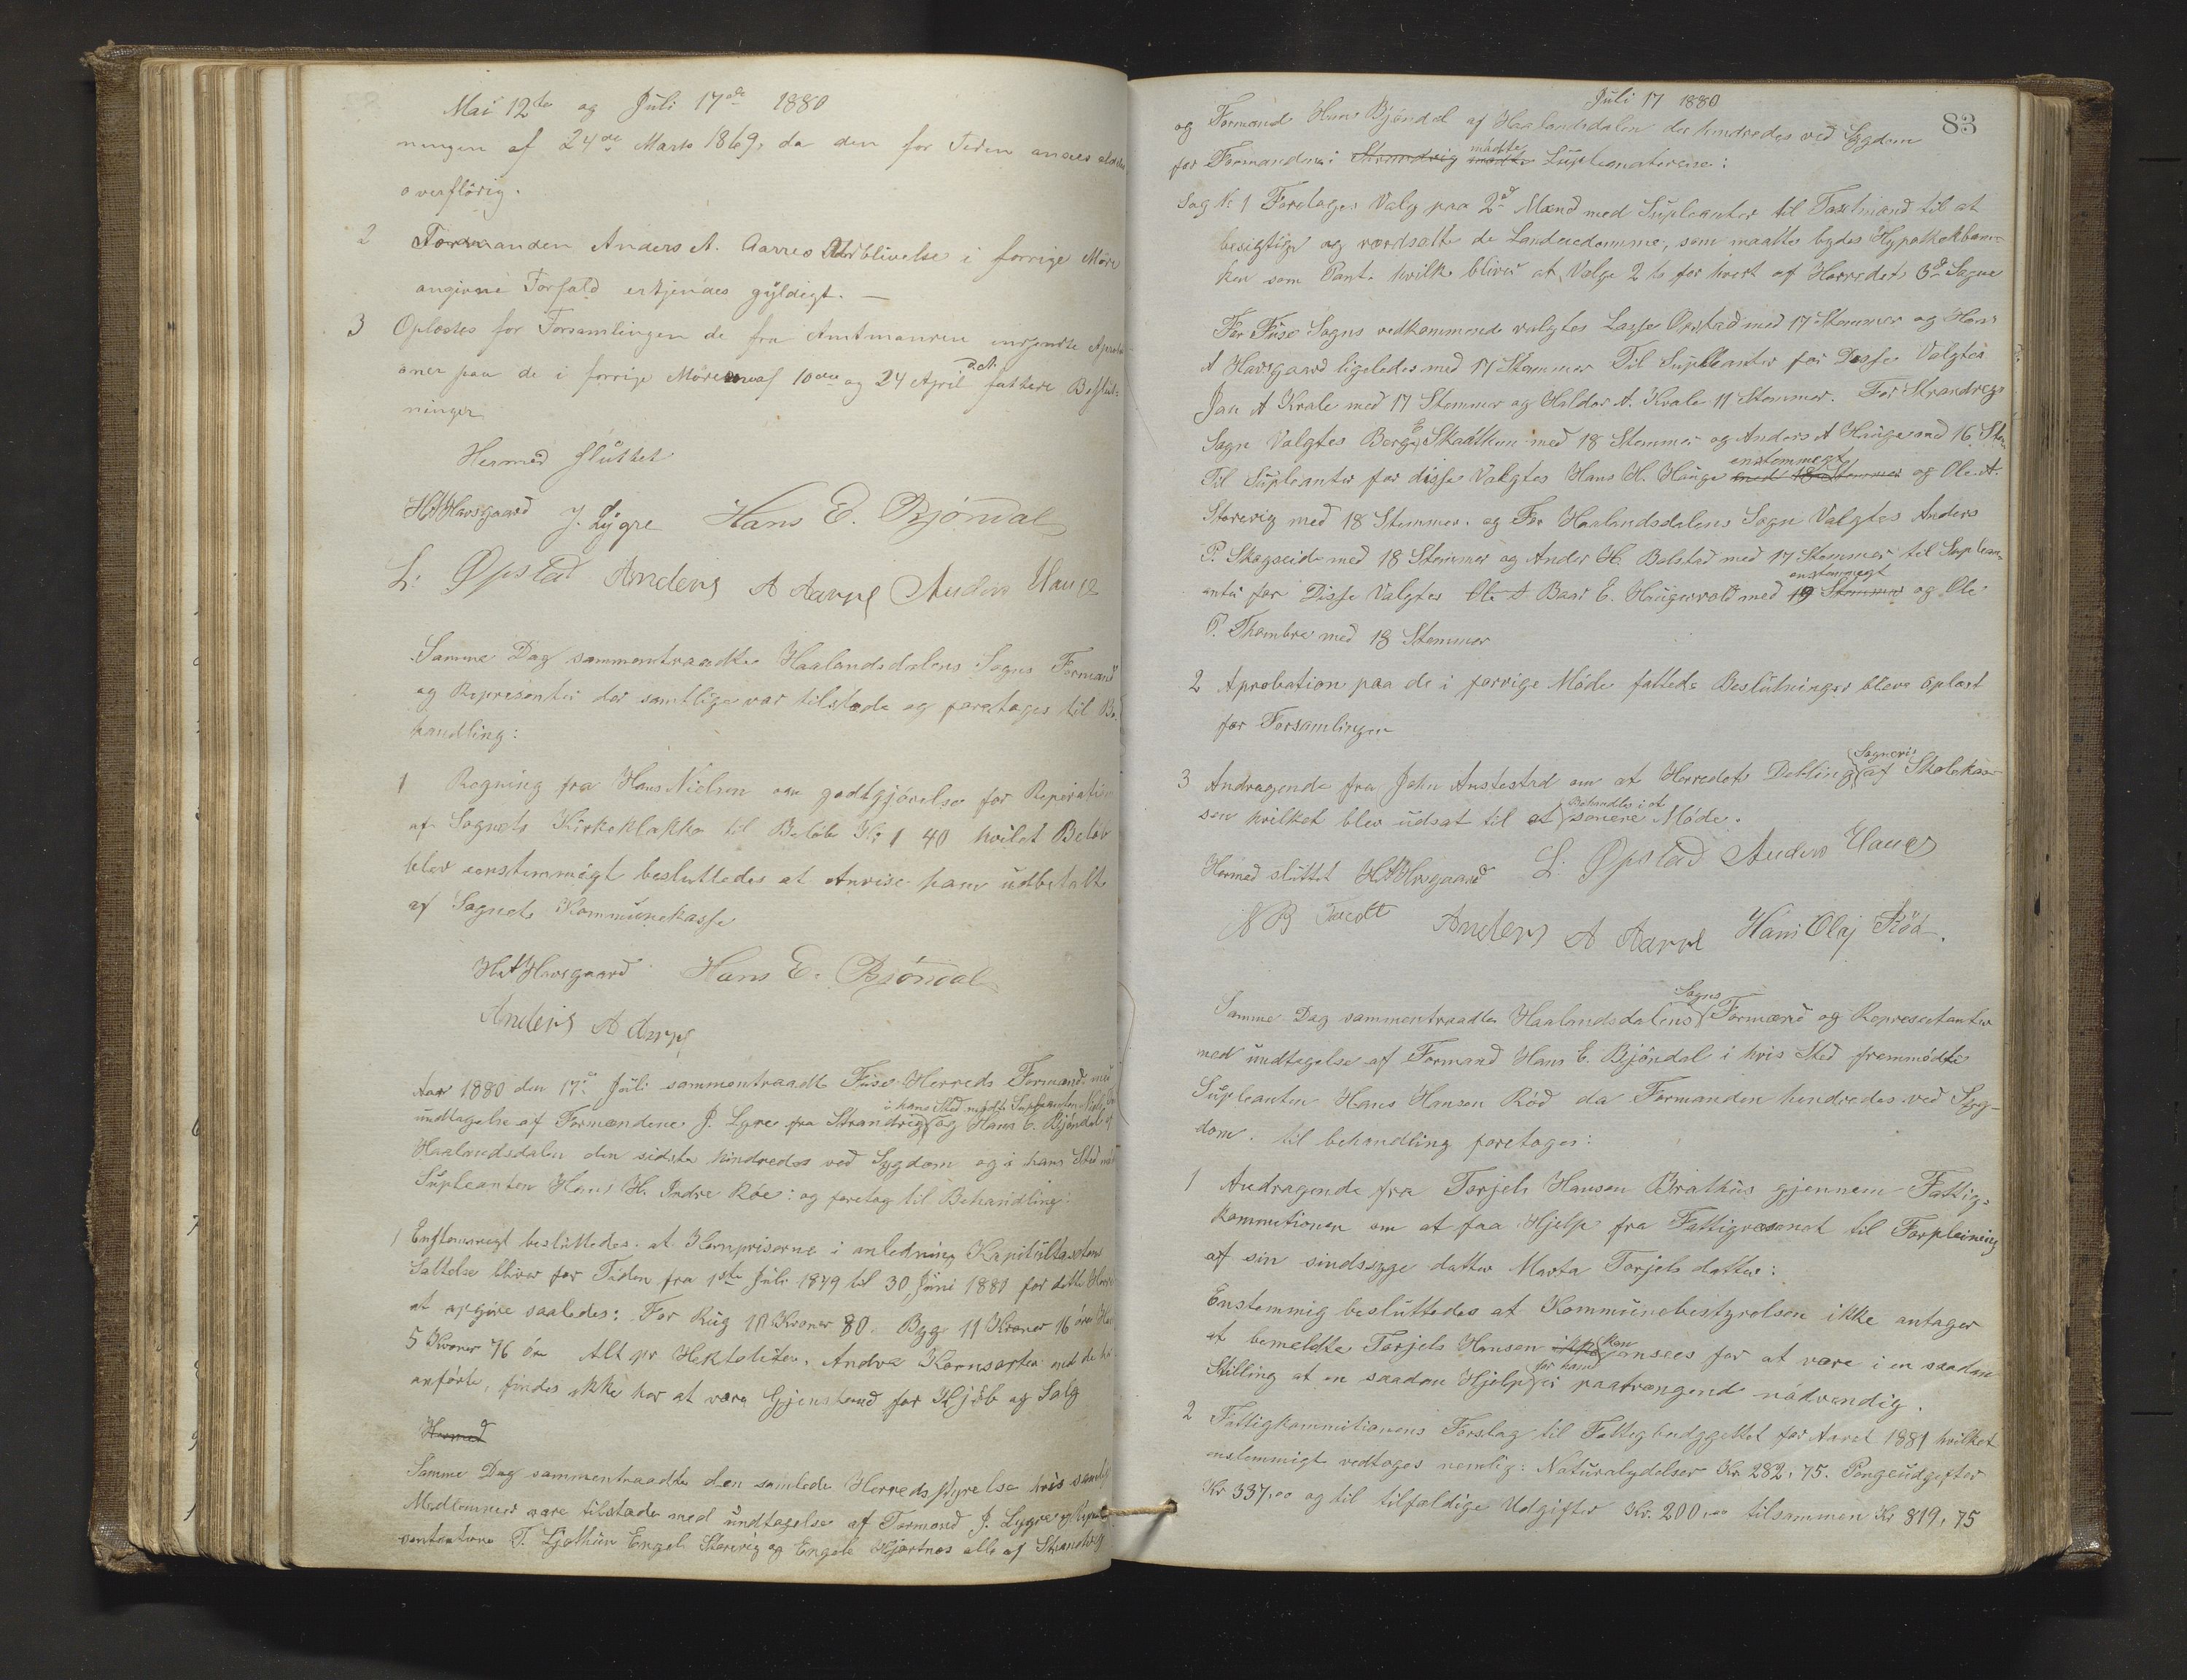 Mai 12te og Juli 17de 1880
ningen af 24de Marts 1869, da den for Tiden ansees
overflörig.
2 Formanden Anders A. Aarres Udeblivelse i forrige Möde
angivne Forfald erkjendes gyldigt. —
3 Oplæstes for Forsamlingen de fra Amtmanden indsendte
oner paa de i forrige Möde af 10de og 24 April d.A. fattede Beslut-
ninger
Hermed sluttet
HAHavsgaard J. Lygre Hans E. Bjöndal
L. Öpstad Anders A Aarre Anders Hauge
Samme Dag sammentraadte Haalandsdalens Sogns Formænd
og Representer der samtlige var tilstede og foretoges til Be-
handling:
1 Regning fra Hans Nielsen om godtgjörelse for Reperation
af Sognets Kirkeklokke til Belöb Kr 1 40 hvilet Belöb
blev eenstemmigt besluttedes at Anvise ham udbetalt
af Sognets Kommunekasse
HAHavsgaard Hans E. Bjöndal
Anders A Aarre
Aar 1880 den 17de Juli sammentraadte Fuse Herreds Formænd med
i hans Sted mödte Supleanten
undtagelse af Formændene J. Lygre fra Strandvig og Hans E. Bjöndal af
Haalandsdalen den sidste hindredes ved Sygdom og i hans Sted
Supleanten Hans H. Indre Röe: og foretog til Behandling:
1 Enstemmigt besluttedes at Kornpriserne i anledning Kapitultaxtens
Sættelse bliver for Tiden fra 1ste Juli 1879 til 30 Juni 1880 for dette
at opgive saaledes: For Rug 10 Kroner 80. Byg 11 Kroner 16 öre
5 Kroner 76 öre Alt pr Hektoliter. Andre Kornsorter end de her
anförte, findes ikke her at være Gjenstand for Kjöb og Salg
Hermed
Samme Dag sammentraadte den samlede Herredsstyrelse hvis samtlige
Medlemmer vare tilstede med undtagelse af Formand J. Lygre og
sentanterne T. Ljothun Engel Storevig og Engel Hjartnes alle af Strandvig
Juli 17 1880
83
og Formand Hans Bjöndal af Haalandsdalen der hindredes ved Sygdom
for Formændene i Strandvig mödte Supleanterene:
Sag No 1 Foretages Valg paa 2de Mænd med Supleanter til Taxtmænd til at
besigtige og værdsætte de Landeiedomme, som maatte bydes Hypothekban-
ken som Pant. hvilke bliver at Vælge 2 to for hvert af Herredets 3de Sogne
For Fuse Sogns vedkommende valgtes Lasse Öpstad med 17 Stemmer og Hans
A Havsgaard ligeledes med 17 Stemmer Til Supleanter for Disse Valgtes
Jan A Kvale med 17 Stemmer og Haldor A. Kvale 11 Stemmer. For Strandvigs
Sogn Valgtes Berge E Skaatkun med 18 Stemmer og Anders A Hauge med 16 Stem
Til Supleanter for disse Valgtes Hans H. Hauge enstemmegt med 18 Stemmer og Ole A.
Storevig med 18 Stemmer. og For Haalandsdalens Sogn Valgtes Anders
P. Skogseide med 18 Stemmer og Anders H. Bolstad med 17 Stemmer til Suplean-
enstemmegt
anter for Disse Valgtes Ole A Baar E. Haugervold med 19 Stemmer og Ole
P. Thombre med 18 Stemmer
2 Aprobation paa de i forrige Möde fattede Beslutninger bleve oplæst
for Forsamlingen
3 Andragende fra John Austestad om at Herredets Dehling Sogneviis af Skolekas-
sen hvilket blev udsat til at Behandles i et senere Möde.
Hermed sluttet HAHavsgaard L. Öpstad Anders Hauge
NB Tvedt Anders A Aarre Hans Olaj Röd.
Samme Dag sammentraadte Haalandsdalens Sogns Formænd og Representanter
med undtagelse af Formand Hans E. Bjöndal i hvis Sted fremmödte
Supleanten Hans Hansen Röd da Formanden hendredes ved Syg-
dom. til behandling foretages:
1 Andragende fra Torjels Hansen Brathus gjennem Fattig-
kommitionen om at faa Hjelp fra Fattigvæsenet til Forpleining
af sin sindssyge datter Marta Torjels datter:
Enstemmig besluttedes at Kommunebestyrelsen ikke antager
at bemeldte Torjels Hansen ikke kan ansees for at være i en saadan
Stilling at en saadan Hjelp for ham er paatrængend nödvendig.
2 Fattigkommitionens Forslag til Fattigbudggettet for Aaret 1881 hvilket
enstemmigt vedtoges nemlig: Naturalydelser Kr 282,75. Pengeudgifter
Kr 337,00 og til tilfældige Udgifter Kr. 200,00 tilsammen Kr 819,75